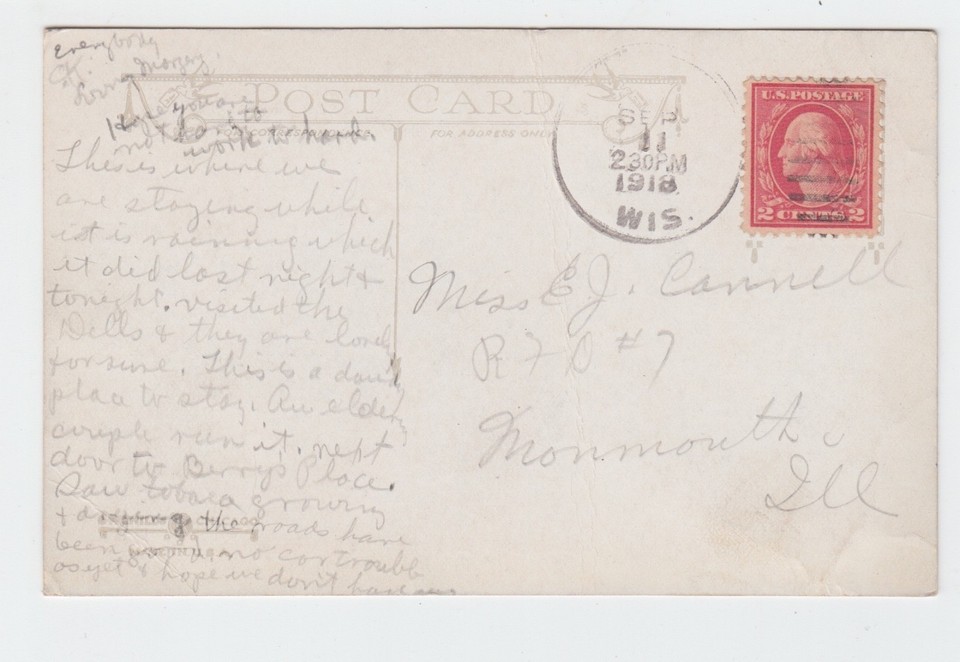 Everybody
O.K.
Love Margery.
Hope you are
not having to
work to hard.
POST CARD
FOR CORRESPONDENCE
FOR ADDRESS ONLY
SEP
11
2 30 PM
1918
WIS.
U.S. POSTAGE
2 CENTS 2
This is where we
are staying while
it is raining which
it did last night &
tonight. visited the
Dells & they are lovely
for sure. This is a dandy
place to stay. An elderly
couple run it. next
door to Berrys Place.
Saw tobacco growing
& drying the roads have
been good, no car trouble
as yet & hope we don't have any
Miss E J. Cannell
R F D #7
Monmouth
Ill